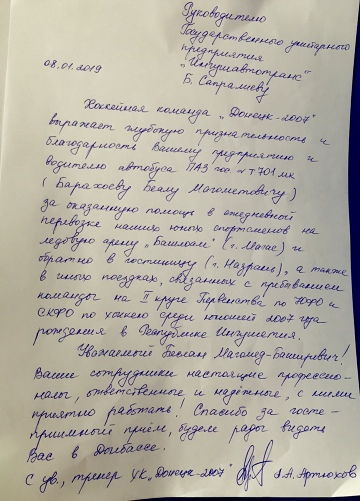 Руководителю
Государственного унитарного
предприятия
"Ингушавтотранс"
08.01.2019
Б. Сапралиеву
Хоккейная команда "Донецк-2007"
выражает глубокую признательность и
благодарность Вашему предприятию и
водителю автобуса ПАЗ гос 701
(Барахоеву Беалу Магометовичу)
за оказанную помощь в ежедневной
перевозке наших юных спортсменов на
ледовую арену "Башлоам" (г. Магас) и
обратно в гостиницу (г. Назрань), а также
в иных поездках, связанных с пребыванием
команды на II круге Первенства по ЮФО и
СКФО по хоккею среди юношей 2007 года
рождения в Республике Ингушетия.
Уважаемый Беслан Магомед-Баширович!
Ваши сотрудники настоящие профессио-
налы, ответственные и надёжные, с ними
приятно работать! Спасибо за госте-
приимный приём, будем рады видеть
Вас в Донбассе.
С ув., тренер ХК "Донецк-2007" А.Н. Артюхов